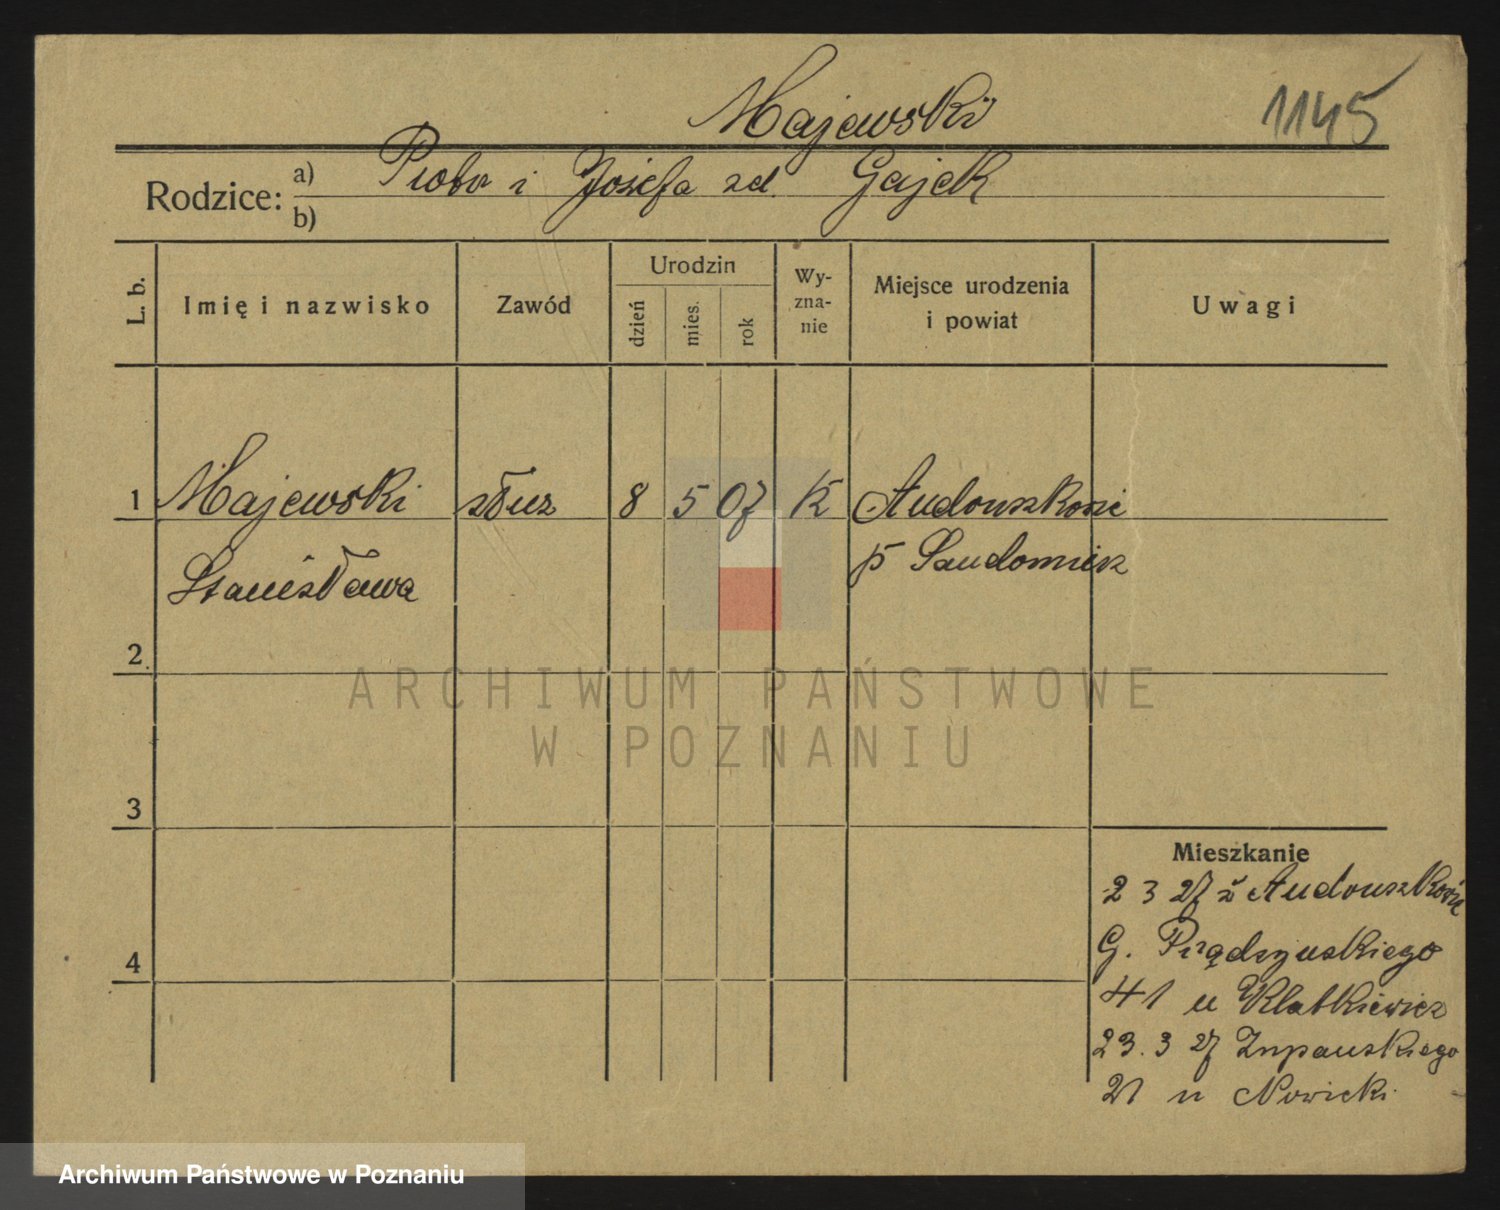 Majewski
1145
Rodzice: a) Piotr i Józefa zd. Gajek
b)
L. b.
Imię i nazwisko
Zawód
Urodzin
dzień
mies.
rok
Wy-
zna-
nie
Miejsce urodzenia
i powiat
Uwagi
1 Majewski służ 8 5 07 K
Stanisława p Sandomierz
2
3
4
Mieszkanie
2 3 27 z
G. Prądzyńskiego
41 u Klatkiewicz
23. 3 27 Żupańskiego
21 u Nowicki
ARCHIWUM PAŃSTWOWE
W POZNANIU
Archiwum Państwowe w Poznaniu